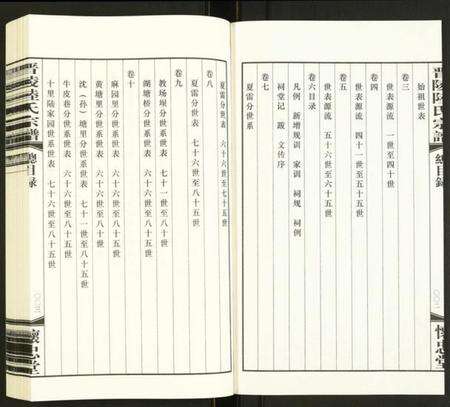 晋陵陆氏宗譜
總目録
懷忠堂
始祖世表
卷三
世表源流 一世至四十世
卷四
世表源流 四十一世至五十世
卷五
世表源流 五十一世至六十五世
卷六目录
凡例 新增规训 家训 祠规 祠例
祠堂记 跋 文传序
卷七
夏雷分世系
夏雷分世表 六十六世至七十五世
卷八
夏雷分世表 七十六世至八十五世
卷九
教场坝分世系世表 七十一世至八十五世
湖塘桥分世系世表 六十六世至八十五世
卷十
麻园里分世系世表 六十六世至八十五世
黄塘里分世系世表 六十六世至八十五世
沈（孙）塘里分世系世表 七十一世至八十五世
牛皮巷分世系世表 六十六世至八十五世
十里陆家园分世系世表 七十六世至八十五世
晋陵陆氏宗譜
總目録
〇〇三
懷忠堂